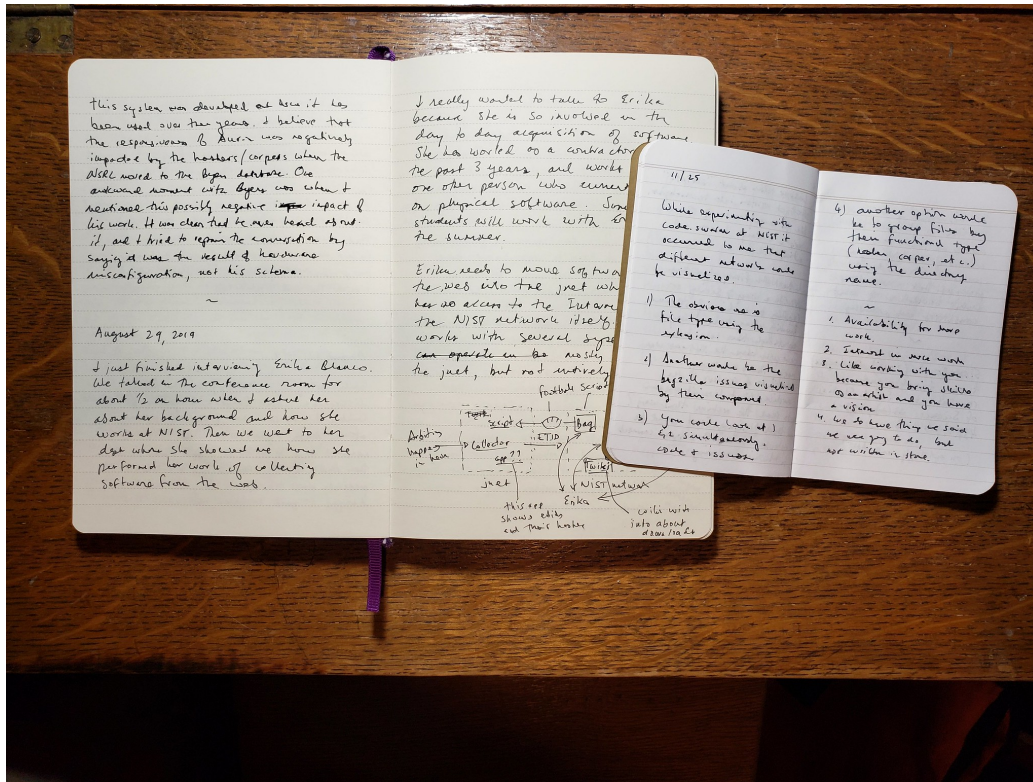 this system was developed and how it has
been used over the years. I believe that
the responsiveness of was negatively
impacted by the hashers/corpses when the
NSRL moved to the Byers database. One
awkward moment with Byers was when I
mentioned this possibly negative impact of
his work. It was clear that he never heard about
it, and I tried to repair the conversation by
saying it was the result of hardware
misconfiguration, not his schema.
~
August 29, 2019
I just finished interviewing Erika Blanco.
We talked in the conference room for
about 1/2 an hour when I asked her
about her background and how she
works at NIST. Then we went to her
desk where she showed me how she
performed her work of collecting
software from the web.
I really wanted to talk to Erika
because she is so involved in the
day to day acquisition of software.
She has worked as a contractor
the past 3 years, and works
one other person who
on physical software. Some
students will work with
the summer.
Erika needs to move softwa
the web into the jnet wh
has no access to the Intern
the NIST network itself.
works with several
can operate in be mostly
the jnet, but not entirely
football script
script
Bag
Collector
ETID
app ??
happens
in here
Twiki
jnet
NIST network
Erika
this app
shows etids
and their hashes
wiki with
info about
11/25
While experimenting with
code_swarm at NIST it
occurred to me that
different networks could
be visualized.
1) The obvious one is
file type using the
extension.
2) Another would be the
bugzilla issues visualized
by their component
3) You could look at 1
& 2 simultaneously.
code & issues
4) another option would
be to group files by
their functional type
(hasher, corpser, etc.)
using the directory
name.
~
1. Availability for more
work
2. Interest in more work
3. Like working with you
because you bring skills
as an artist and you have
a vision
4. we do have things we said
we are going to do, but
not written in stone.